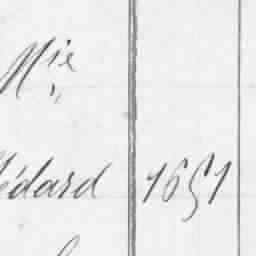 Mie
édard 1651